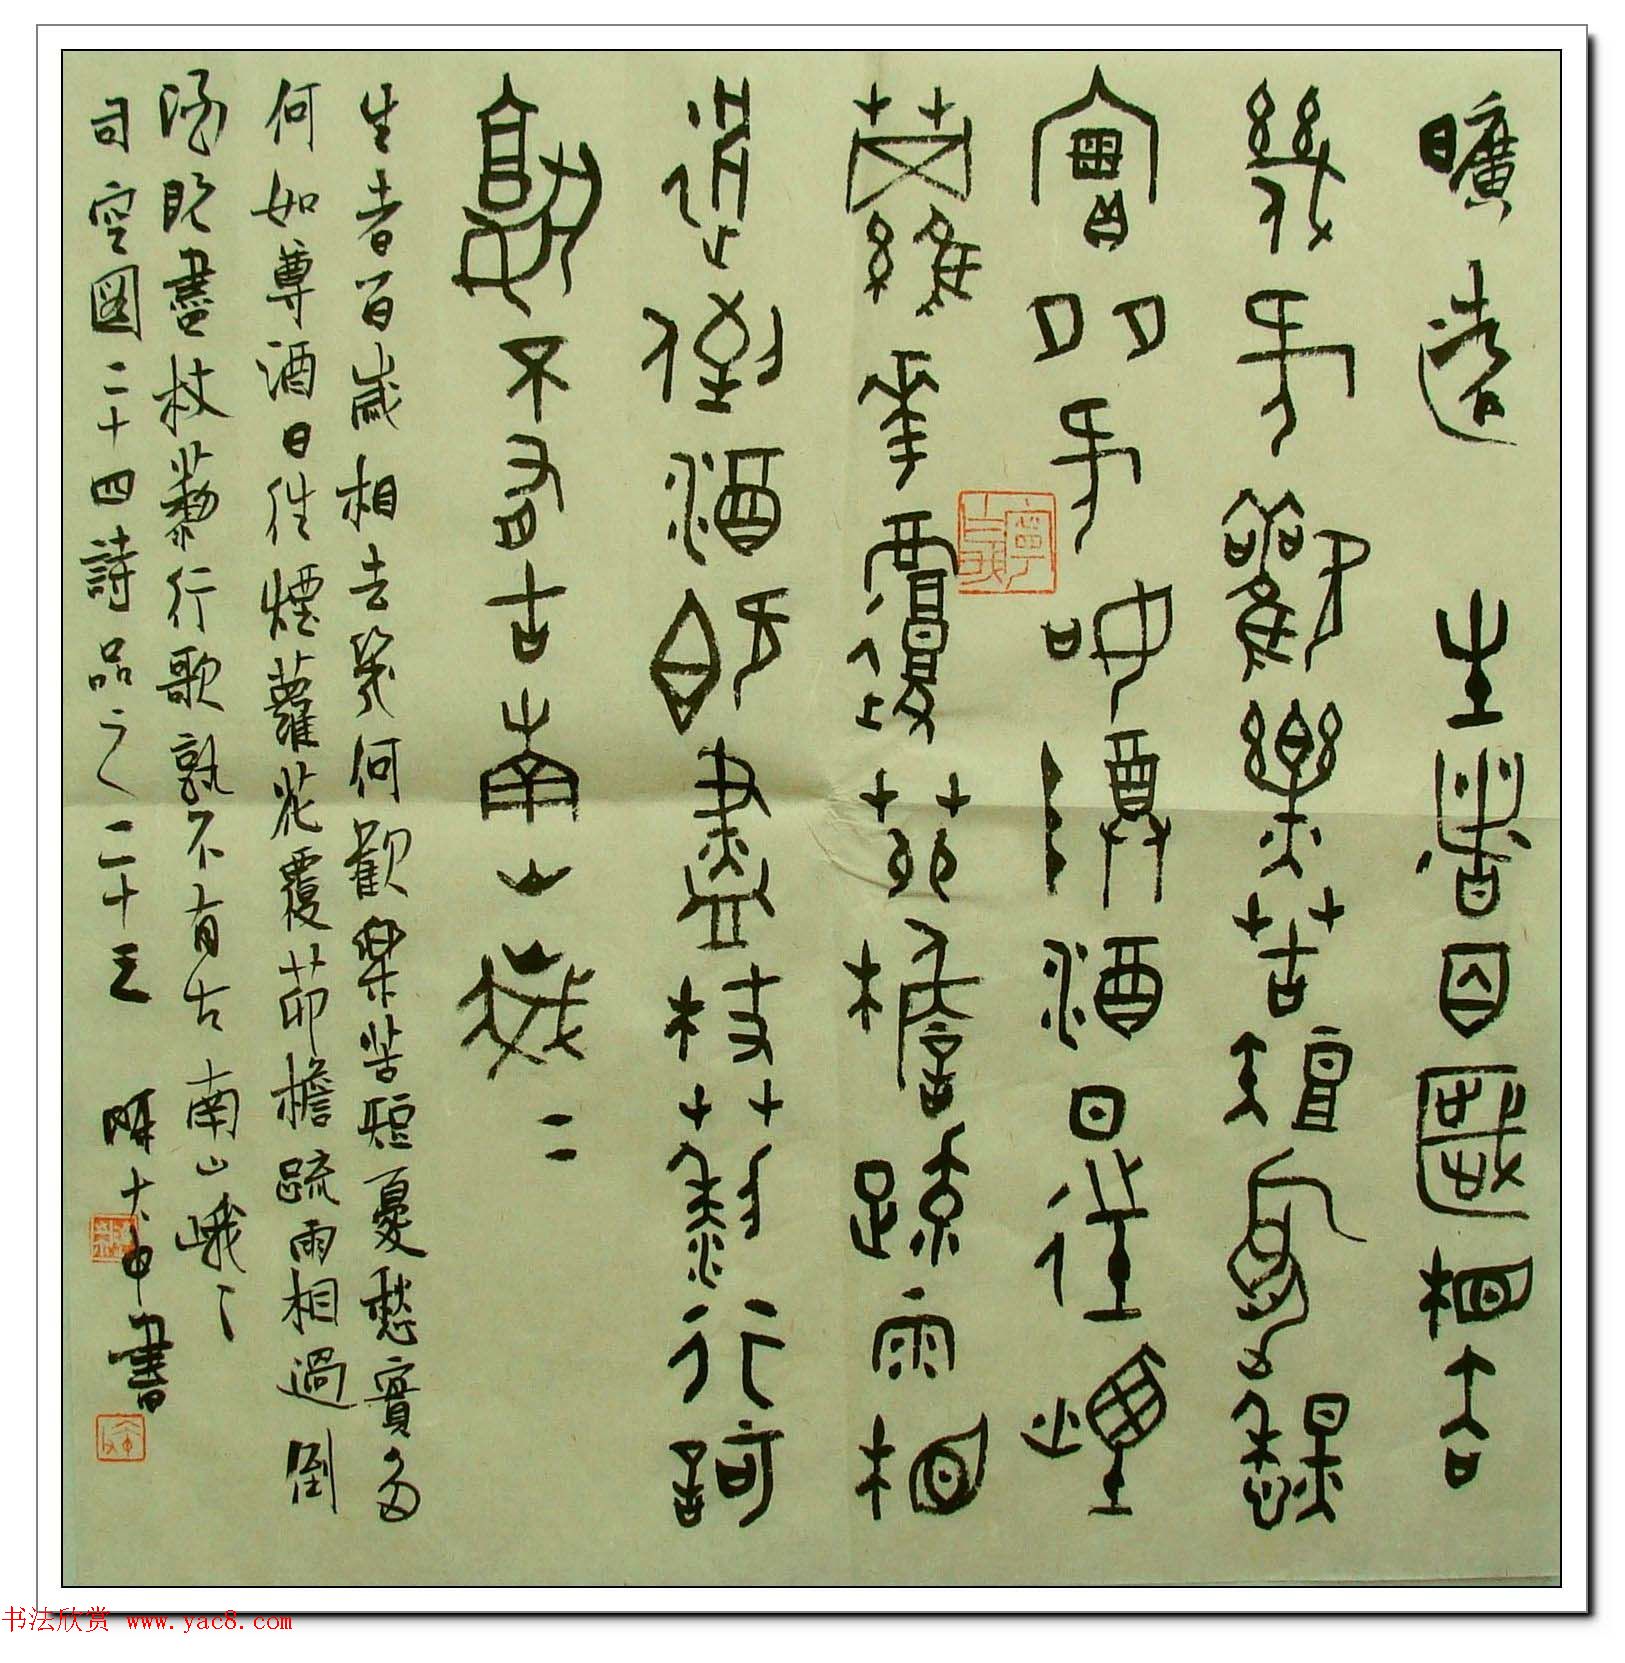 曠達 生者百歲相去
幾何歡樂苦短憂愁
實多何如尊酒日往煙
蘿花覆茆檐疏雨相
過倒酒既盡杖藜行歌
孰不有古南山峨二
生者百歲相去幾何歡樂苦短憂愁實多
何如尊酒日往煙蘿花覆茆檐疏雨相過倒
酒既盡杖藜行歌孰不有古南山峨々
司空圖二十四詩品之二十三 陳大中書
书法欣赏 www.yac8.com